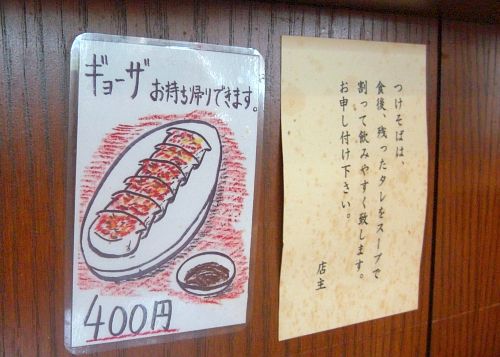 ギョーザ お持ち帰りできます。
400円
つけそばは、
食後、残ったタレをスープで
割って飲みやすく致します。
お申し付け下さい。
店主